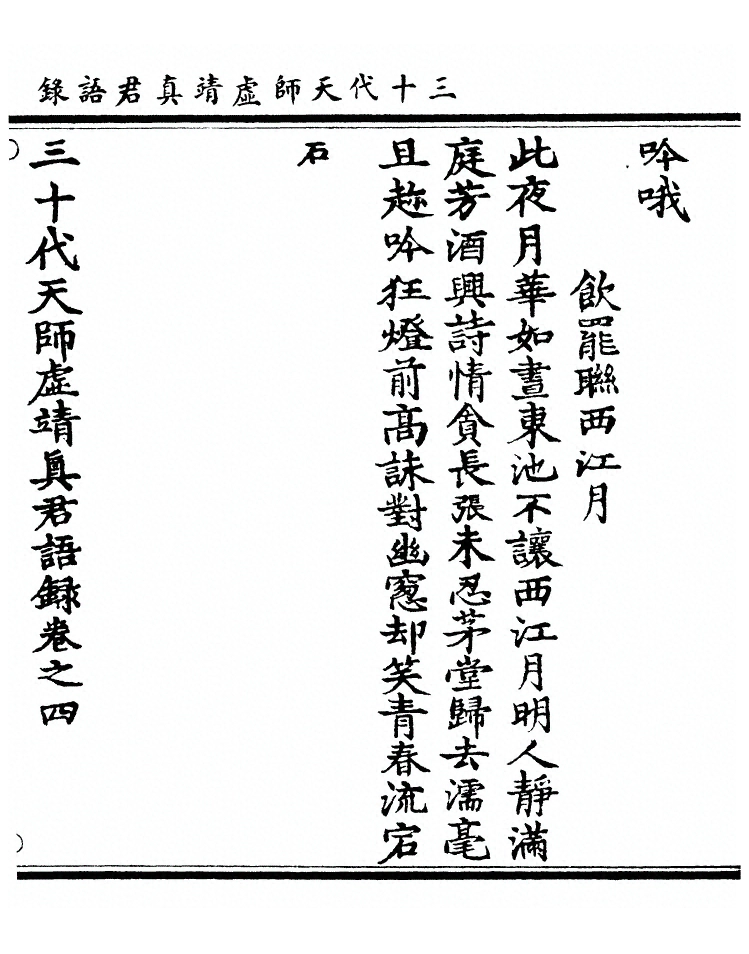 三十代天師虛靖真君語錄
吟哦
飲罷聯西江月
此夜月華如晝東池不讓西江月明人靜滿
庭芳酒興詩情貪長張未忍茅堂歸去濡毫
且趂吟狂燈前高詠對幽窓却笑青春流宕
石
三十代天師虛靖眞君語録卷之四